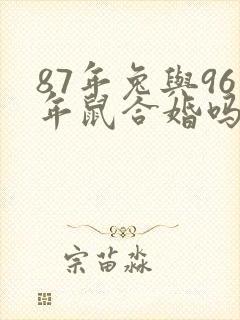 87年兔與96
年鼠合婚吗
宗苗淼